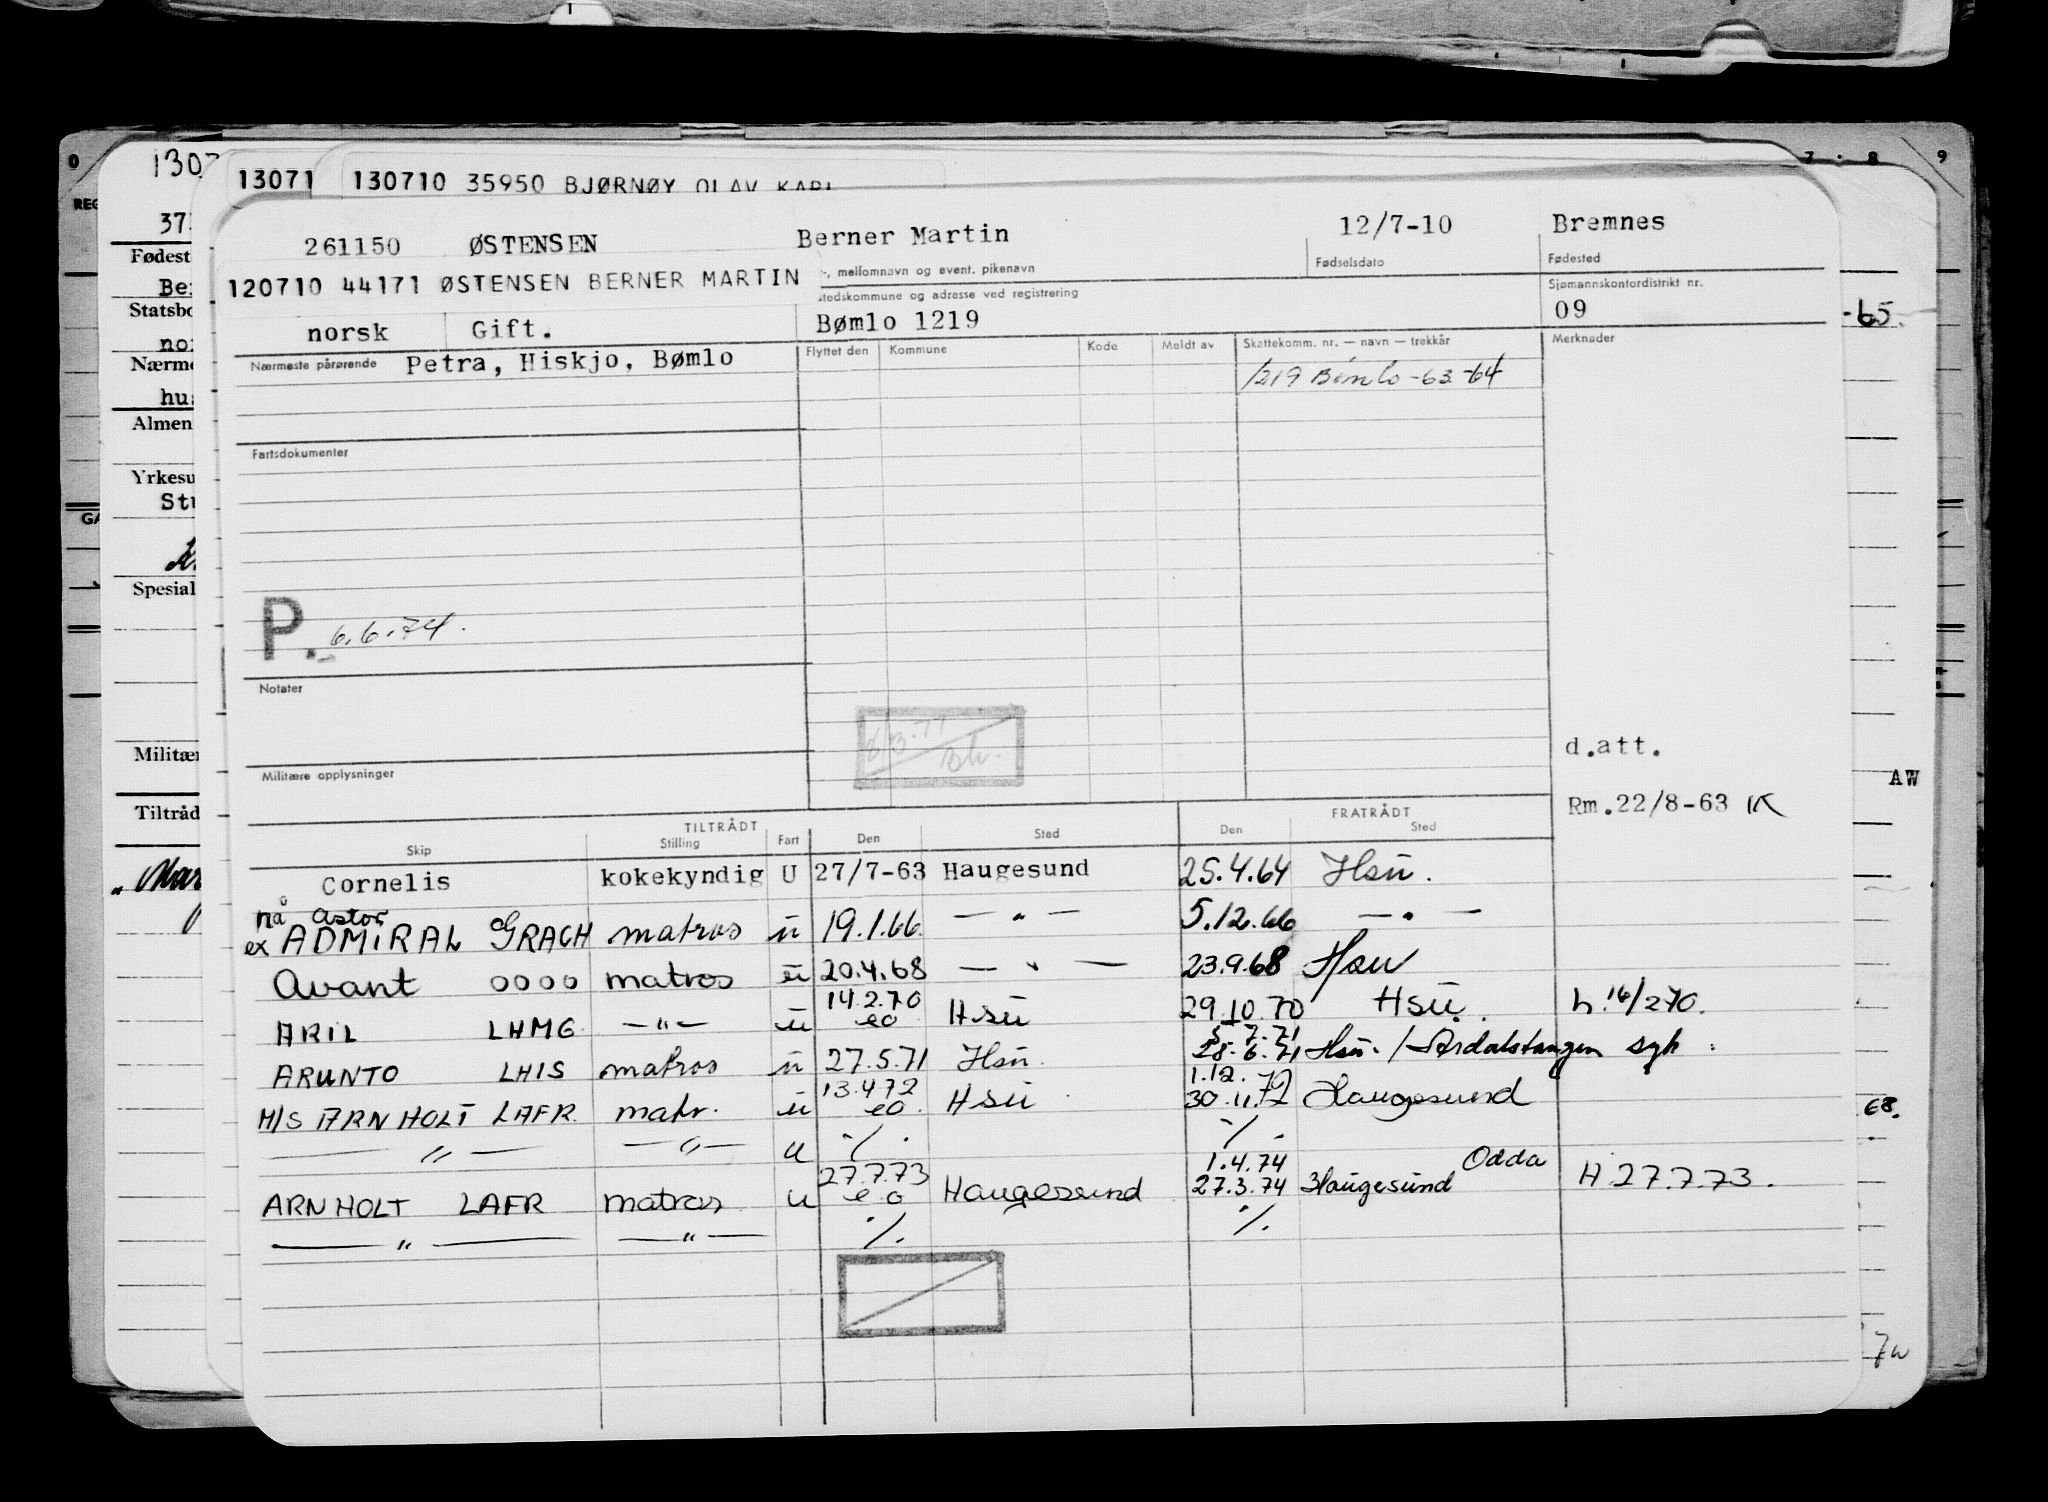 130710 35950 BJØRNØY OLAV KARL
13071
261150 ØSTENSEN Berner Martin 12/7-10 Bremnes
mellomnavn og event. pikenavn Fødselsdato Fødested
120710 44171 ØSTENSEN BERNER MARTIN
stedskommune og adresse ved registrering Sjømannskontordistrikt nr.
norsk Gift. Bømlo 1219 09
Nærmeste pårørende Petra, Hiskjo, Bømlo
Flyttet den Kommune Kode Meldt av Skattekomm. nr. — navn — trekkår Merknader
1219 Bømlo -63-64
Fartsdokumenter
P. 6.6.74.
Notater
Militære opplysninger
d.att.
Rm.22/8-63 IK
TILTRÅDT FRATRÅDT
Skip Stilling Fart Den Sted Den Sted
Cornelis kokekyndig U 27/7-63 Haugesund 25.4.64 Hsu.
nå Astor
ex ADMIRAL GRACH matros u 19.1.66. — " — 5.12.66 — " —
Avant OOOO matros u 20.4.68 — " — 23.9.68 Hsu
14.2.70
ARIL LHMG — " — u eo Hsu 29.10.70 Hsu. h.16/270.
5.7.71
ARUNTO LHIS matros u 27.5.71 Hsu. 28.6.71 Hsu. / Årdalstangen sgh.
13.4.72 1.12.72
M/S ARNHOLT LAFR. matr. u eo. Hsu 30.11.72 Haugesund
— " — — " — u ./. ./.
27.7.73 1.4.74 Odda
ARNHOLT LAFR matros u eo Haugesund 27.3.74 Haugesund H.27.7.73.
— " — — " — ./. ./.
Fødest
Statsbo
Nærme
Almen
Yrkesu
Spesial
Militær
Tiltråd
-65.
AW
68.